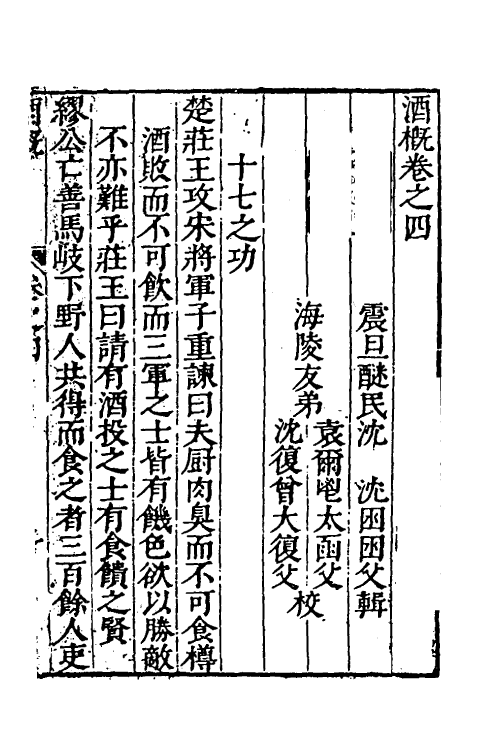 酒概卷之四
震旦醚民沈　沈囦囦父輯
海陵友弟
袁爾　太函父
沈復曾大復父
校
十七之功
楚莊王攻宋將軍子重諫曰夫厨肉臭而不可食樽
酒敗而不可飲而三軍之士皆有饑色欲以勝敵
不亦難乎莊王曰請有酒投之士有食饋之賢
繆公亡善馬岐下野人共得而食之者三百餘人吏
酒概　卷之四